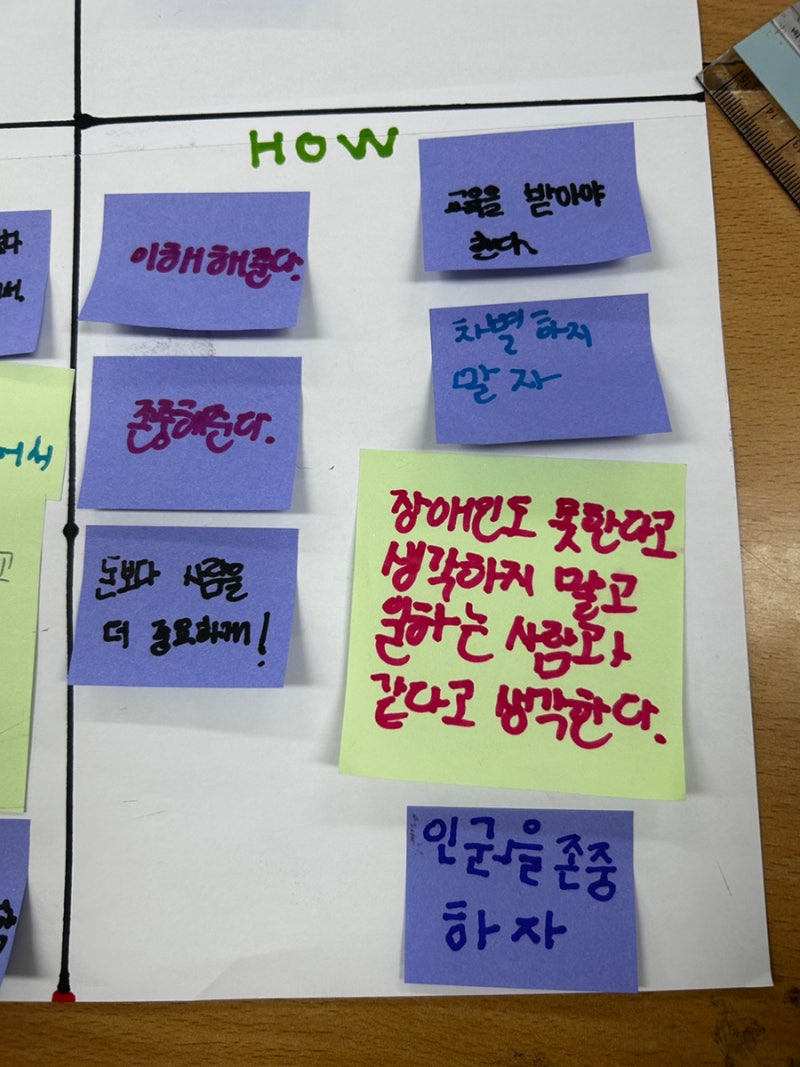 HOW
이해해준다.
존중해준다.
돈보다 사람을
더 중요하게!
교육을 받아야
한다.
차별하지
말자
장애인도 못한다고
생각하지 말고
사람과
같다고 생각한다.
인권을 존중
하자
서.
어서
고